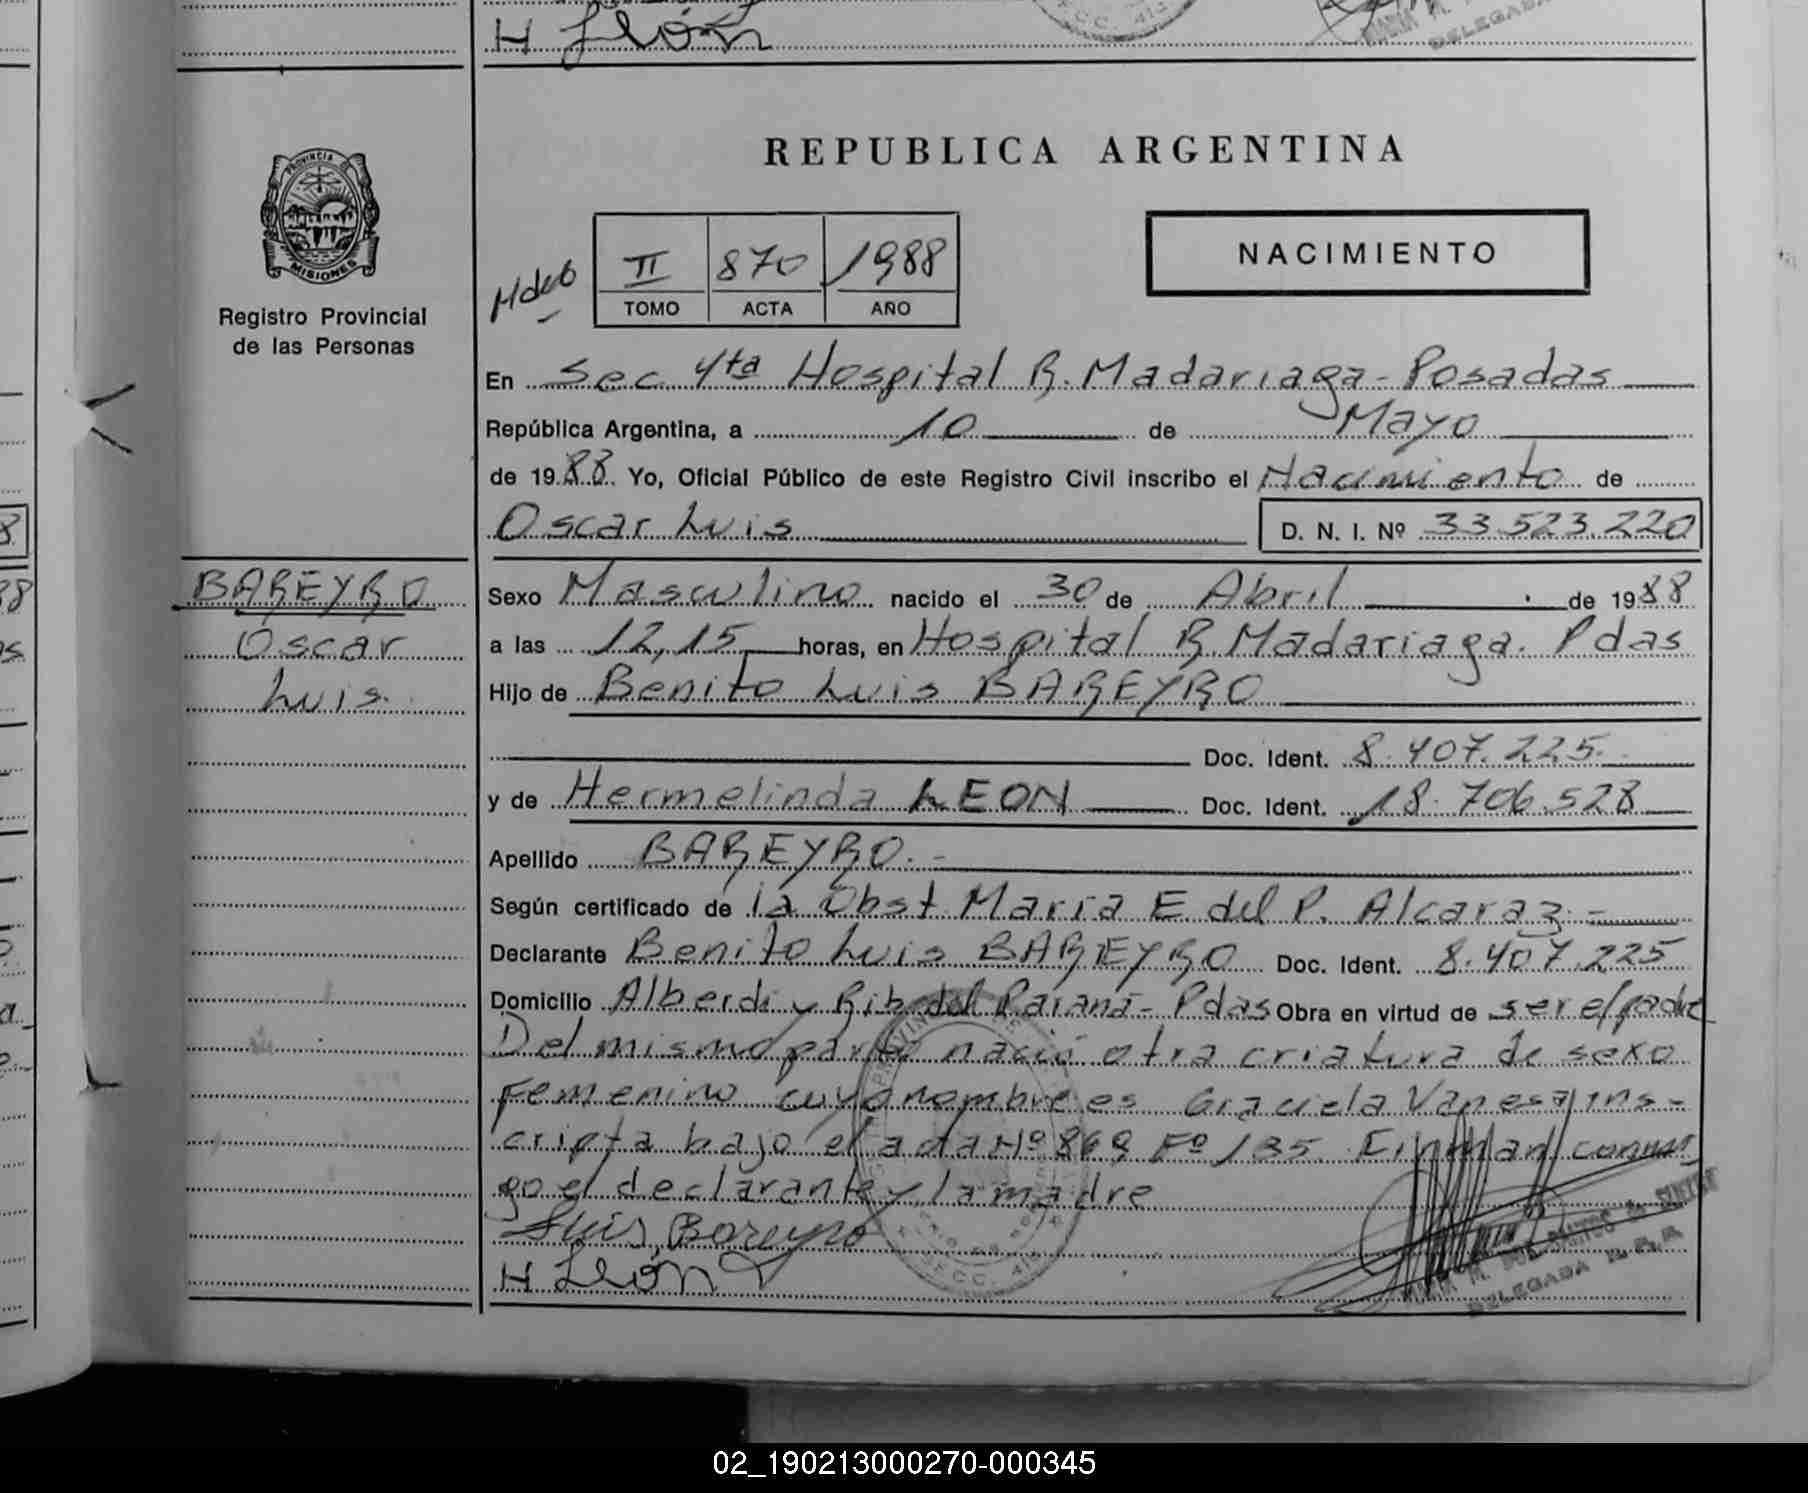 H León
REPUBLICA ARGENTINA
PROVINCIA DE
MISIONES
Registro Provincial
de las Personas
NACIMIENTO
II 870 1988
TOMO ACTA AÑO
En Sec 4ta Hospital R. Madariaga - Posadas
República Argentina, a 10 de Mayo
de 1988 Yo, Oficial Público de este Registro Civil inscribo el Nacimiento de
Oscar Luis D. N. I. Nº 33.523.220
BAREYRO
Oscar
Luis.
Sexo Masculino nacido el 30 de Abril de 1988
a las 12,15 horas, en Hospital R. Madariaga. Pdas
Hijo de Benito Luis BAREYRO
Doc. Ident. 8.407.225.
y de Hermelinda LEON Doc. Ident. 18.706.528
Apellido BAREYRO.-
Según certificado de la Obst. María E. del P. Alcaraz.-
Declarante Benito Luis BAREYRO Doc. Ident. 8.407.225
Domicilio Alberdi y Rib. del Paraná - Pdas Obra en virtud de ser el padre
Del mismo parto nació otra criatura de sexo
femenino cuyo nombre es Graciela Vanesa ins-
cripta bajo el acta Nº 869 Fº 135. Firman conmi-
go el declarante y la madre
Luis Bareyro
H León
DELEGADA R.P.P.
02_190213000270-000345